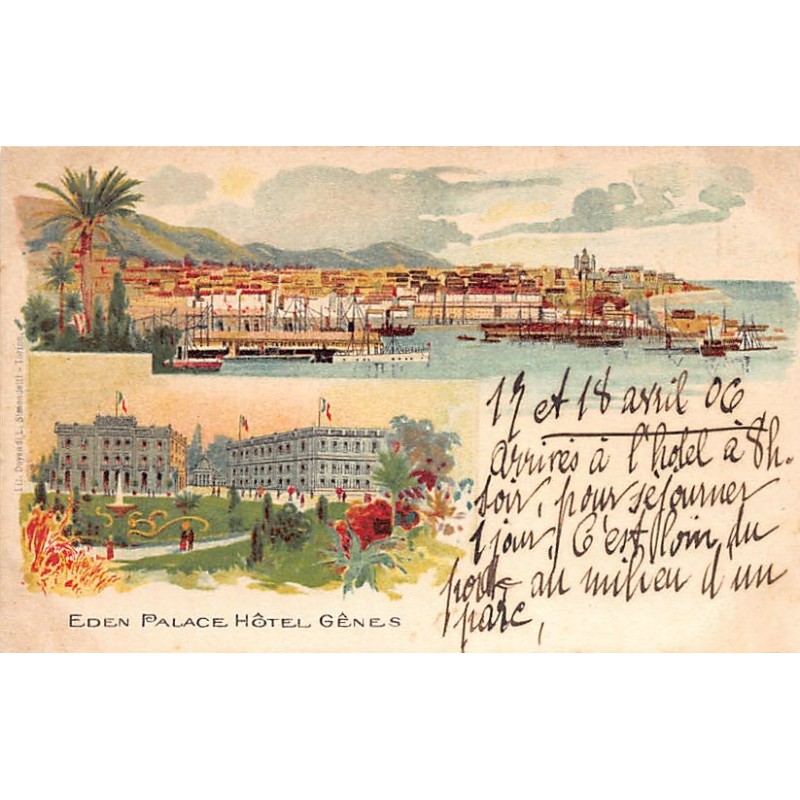 Lit. Doyen di L. Simondetti - Torino
EDEN PALACE HÔTEL GÊNES
17 et 18 avril 06
Arrivés à l'hotel à 8h.
soir, pour séjourner
1 jour, C'est loin du
au milieu d'un
parc,